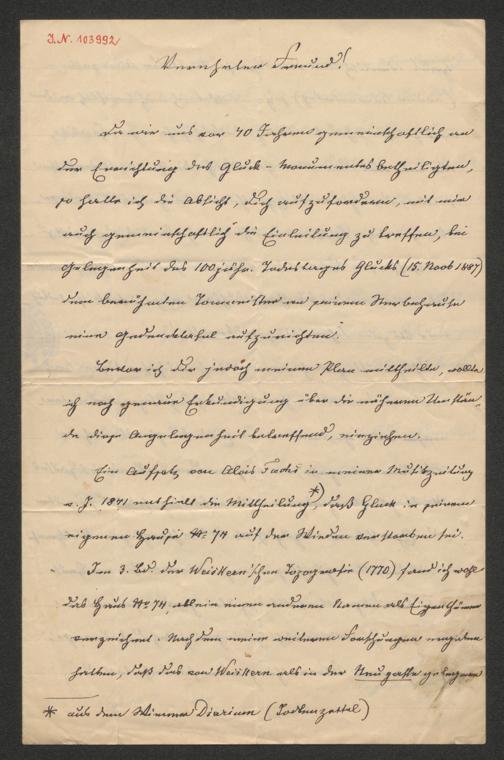 I.N. 103992
Verehrter Freund!
Da wir uns vor 40 Jahren gemeinschaftlich an
der Errichtung des Gluck-Monumentes betheiligten,
so hatte ich die Absicht, Dich aufzufordern, mit mir
auch gemeinschaftlich die Einleitung zu treffen, bei
Gelegenheit des 100jähr. Todestages Glucks (15. Novb 1887)
dem berühmten Tonmeister an seinem Sterbehause
eine Gedenktafel aufzurichten.
Bevor ich Dir jedoch meinen Plan mittheilte, wollte
ich noch genaue Erkundigung über die näheren Umstän-
de diese Angelegenheit betreffend, einziehen.
Ein Aufsatz von Alois Fuchs in meiner Musikzeitung
v. J. 1841 enthielt die Mittheilung *), daß Gluck in seinem
eigenen Hause No 74 auf der Wieden verstorben sei.
Im 3. Bd. der Weiskern'schen Topografie (1770) fand ich wohl
das Haus No 74 allein einen anderen Namen als Eigenthümer
verzeichnet. Nachdem meine weiteren Forschungen ergeben
hatten, daß das von Weiskern als in der Neugasse gelegene
* aus dem Wiener Diarium (Todtenzettel)